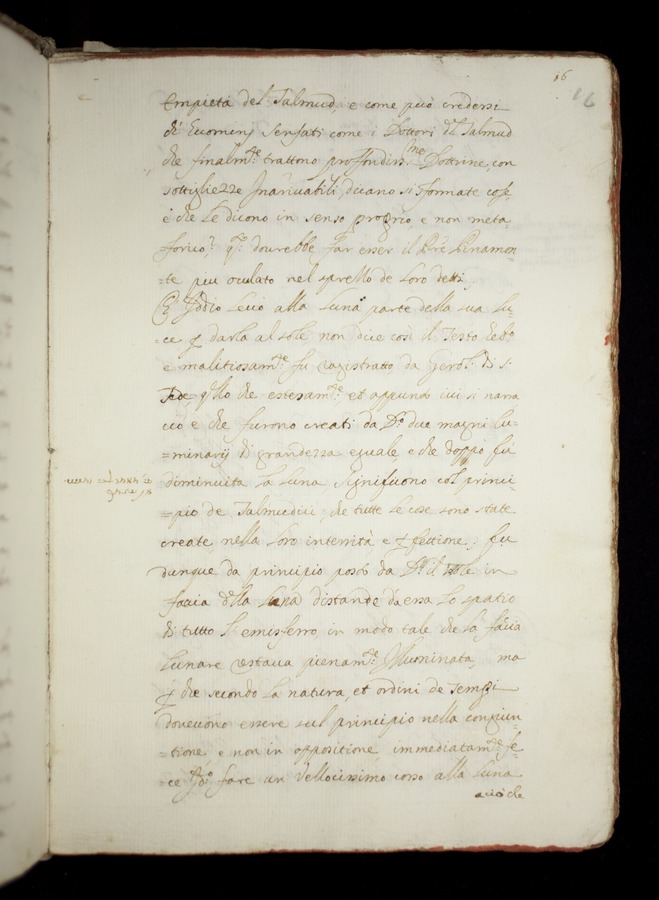 16
16
Empietà del Talmud, e come può credersi
di Euomini sensati come i Dottori del Talmud
che finalm.te trattono profondiss.me Dottrine, con
sottigliezze Inarivabili, dicano si formate cose
e che le dicono in senso proprio, e non meta-
forico? q.o dourebbe far esser il Pre Pinamon-
=te piu oculato nel sprezzo de loro detti
Iddio levò alla Luna parte della sua lu-
=ce p darla al sole non dice così il Testo Ebo
e malitiosam.te fu registratto da Gerol. di S.
Fede, q.llo che estesam.te et appunto ivi si narra
ciò è che furono creati da D.o due magni lu-
=minarij di grandezza eguale, e che doppo fù
diminuita la Luna, significono col princi-
=pio de Talmudici, che tutte le cose sono state
create nella loro interrità e pfettione; fu
dunque da principio posto da D.o il sole in
facia della Luna distande da essa lo spatio
di tutto l'emisferro, in modo tale che la facia
Lunare restaua pienam.te Illuminata, ma
p che secondo la natura, et ordini de Tempi
doveuono essere sul principio nella congiun-
=tione, e non in oppositione, immediatam.te fe-
=ce Id.o fare un Vellocissimo corso alla Luna
acciò che